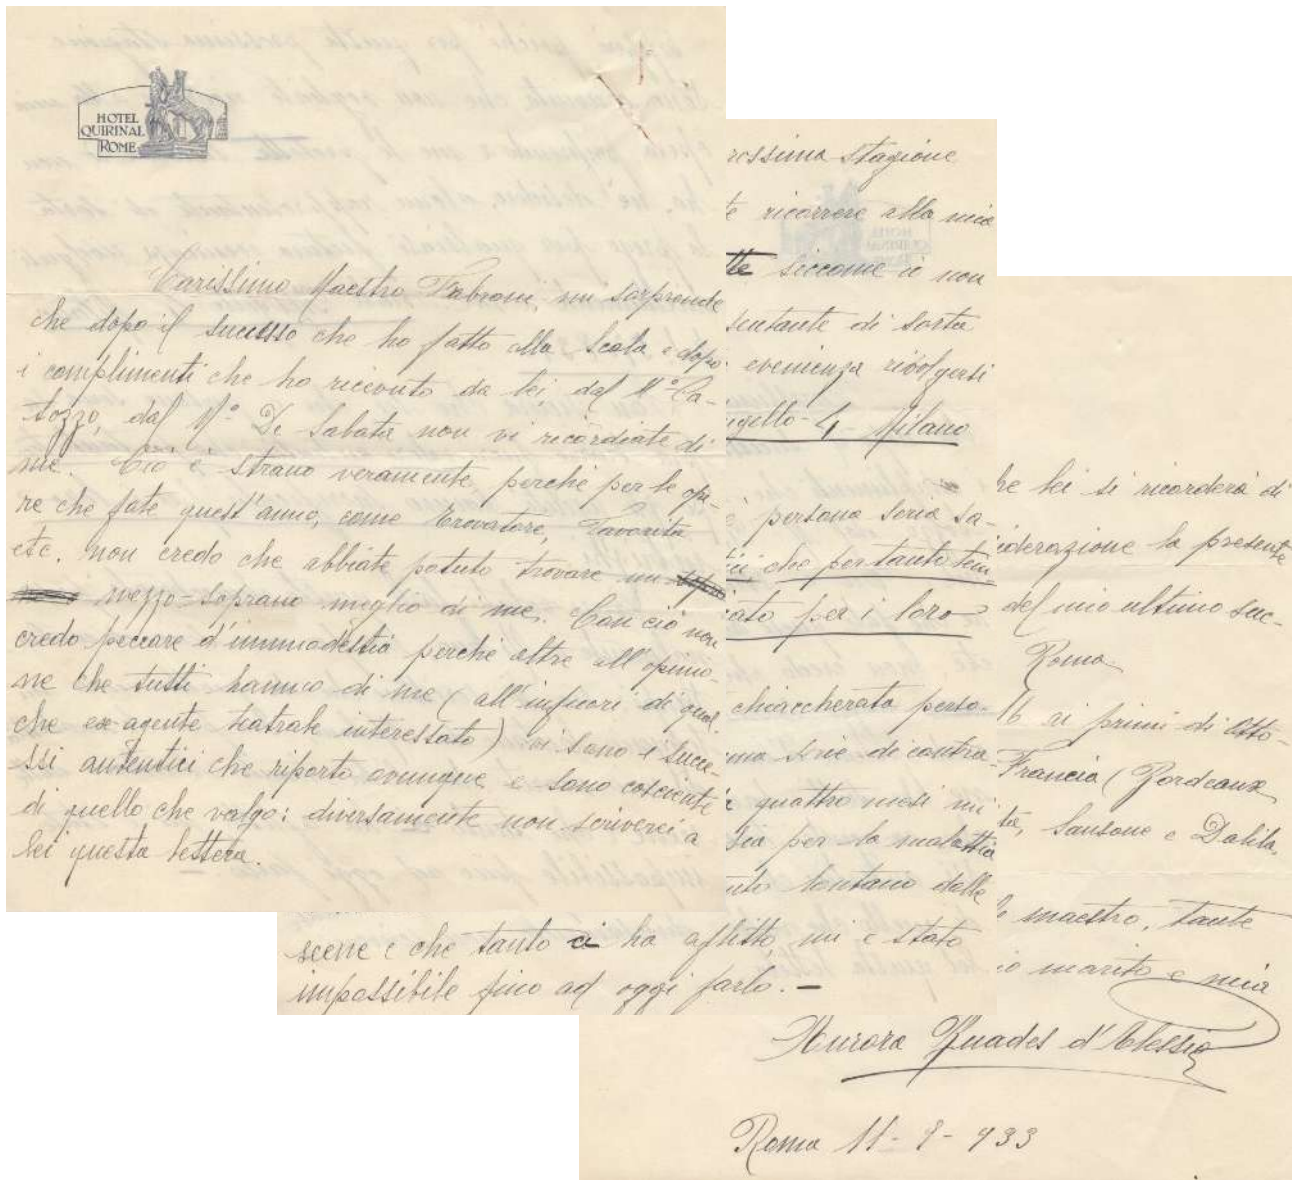 HOTEL
QUIRINAL
ROME
Carissimo Maestro Fabroni, mi sorprende
che dopo il successo che ho fatto alla Scala e dopo
i complimenti che ho ricevuto da lei dal M° Ca-
tozzo, dal M° De Sabata non vi ricordiate di
me. Ciò è strano veramente perché per le ope-
re che fate quest'anno, come Trovatore, Favorita
etc. non credo che abbiate potuto trovare un
mezzo-soprano meglio di me. Con ciò non
credo peccare d'immodestia perché oltre all'opinio-
ne che tutti hanno di me (all'infuori di qual
che ex-agente teatrale interessato) vi sono i succe-
ssi autentici che riporto ovunque e sono cosciente
di quello che valgo: diversamente non scriverei a
lei questa lettera.
rossima stagione
te ricorrere alla mia
tte siccome io non
sentante di sorta
evenienza rivolgersi
ugello-4 Milano
è persona seria sa-
ici, che per tanto tem
cato per i loro
chiaccherata perso-
una serie di contra-
quattro mesi mi
sia per la malattia
uto lontano dalle
scene e che tanto ci ha afflitto, mi è stato
impossibile fino ad oggi farlo.-
he lei si ricorderà di
iderazione la presente
del mio ultimo suc-
Roma
16 ai primi di Otto-
Francia (Bordeaux
ta, Sansone e Dalila,
maestro, tante
io marito e mia
Aurora Buades d'Alessio
Roma 11-9-933